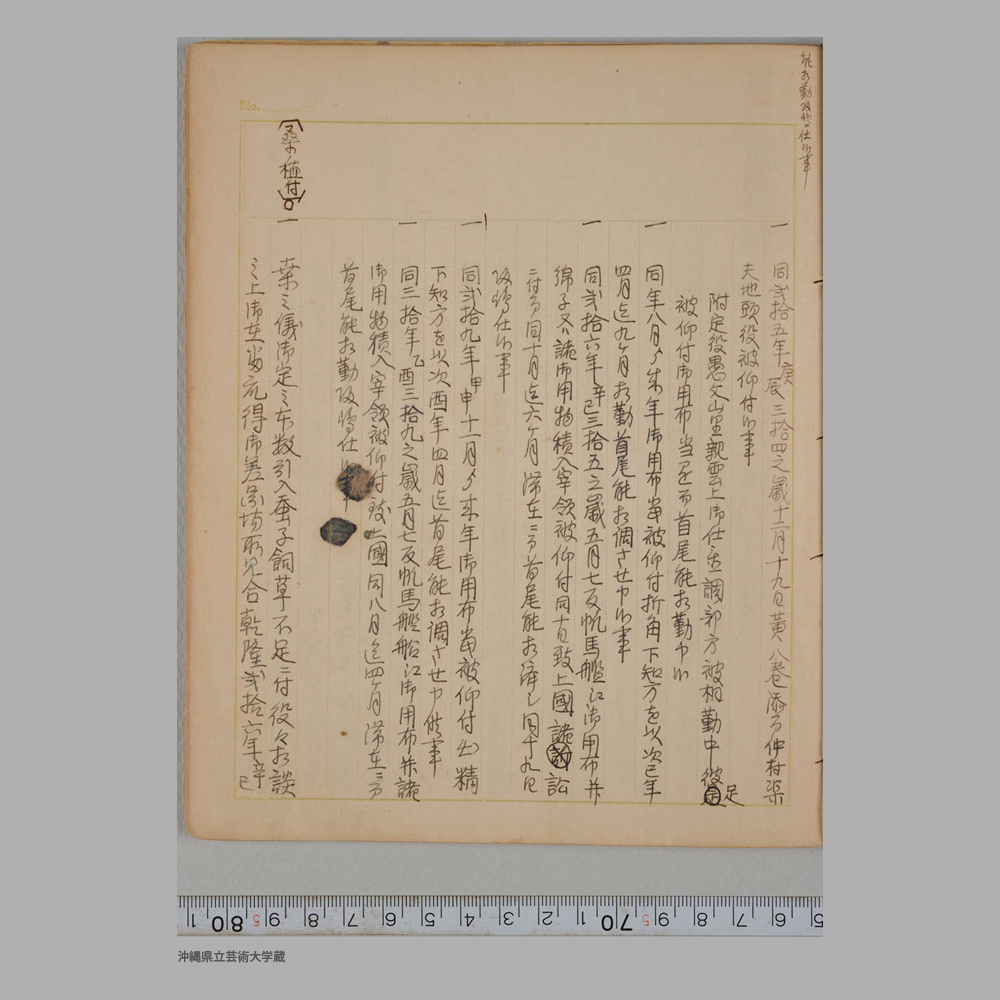 能相勤帰帆仕候事
一 同弐拾五年庚辰三拾四之歳十二月十九日黄八巻添ニ而仲村渠
夫地頭役被仰付候事
附定役愚父山里親雲上御仕立調部方被相勤中彼是足
被仰付御用布当迄ニ而首尾能相勤申候
一 同年八月ゟ来年御用布當被仰付折角下知方を以次巳年
四月迄九ヶ月相勤首尾能相調させ申候事
一 同弐拾六年辛巳三拾五之歳五月七反帆馬艦江御用布并
綿子又ハ諸御用物積入宰領被仰付同十日致上國諸訟
ニ付而同十月迄六ヶ月滞在ニ而首尾能相濟シ同十九日
帰帆仕候事
一 同弐拾九年甲申十一月ゟ来年御用布當被仰付出精
下知方を以次酉年四月迄首尾能相調させ申候事
一 同三拾年乙酉三拾九之歳五月七反帆馬艦船江御用布并諸
御用物積入宰領被仰付致上國同八月迄四ヶ月滞在ニ而
首尾能相勤帰帆仕候事
[桑植付]○
一 桑之儀御定之本数引入蚕子飼草不足ニ付役々相談
之上御在番之得御差図場所見合乾隆弐拾六年辛巳
No.
180 5 9 8 7 6 5 4 3 2 1 70 5 9 8 7 6 5
沖縄県立芸術大学蔵